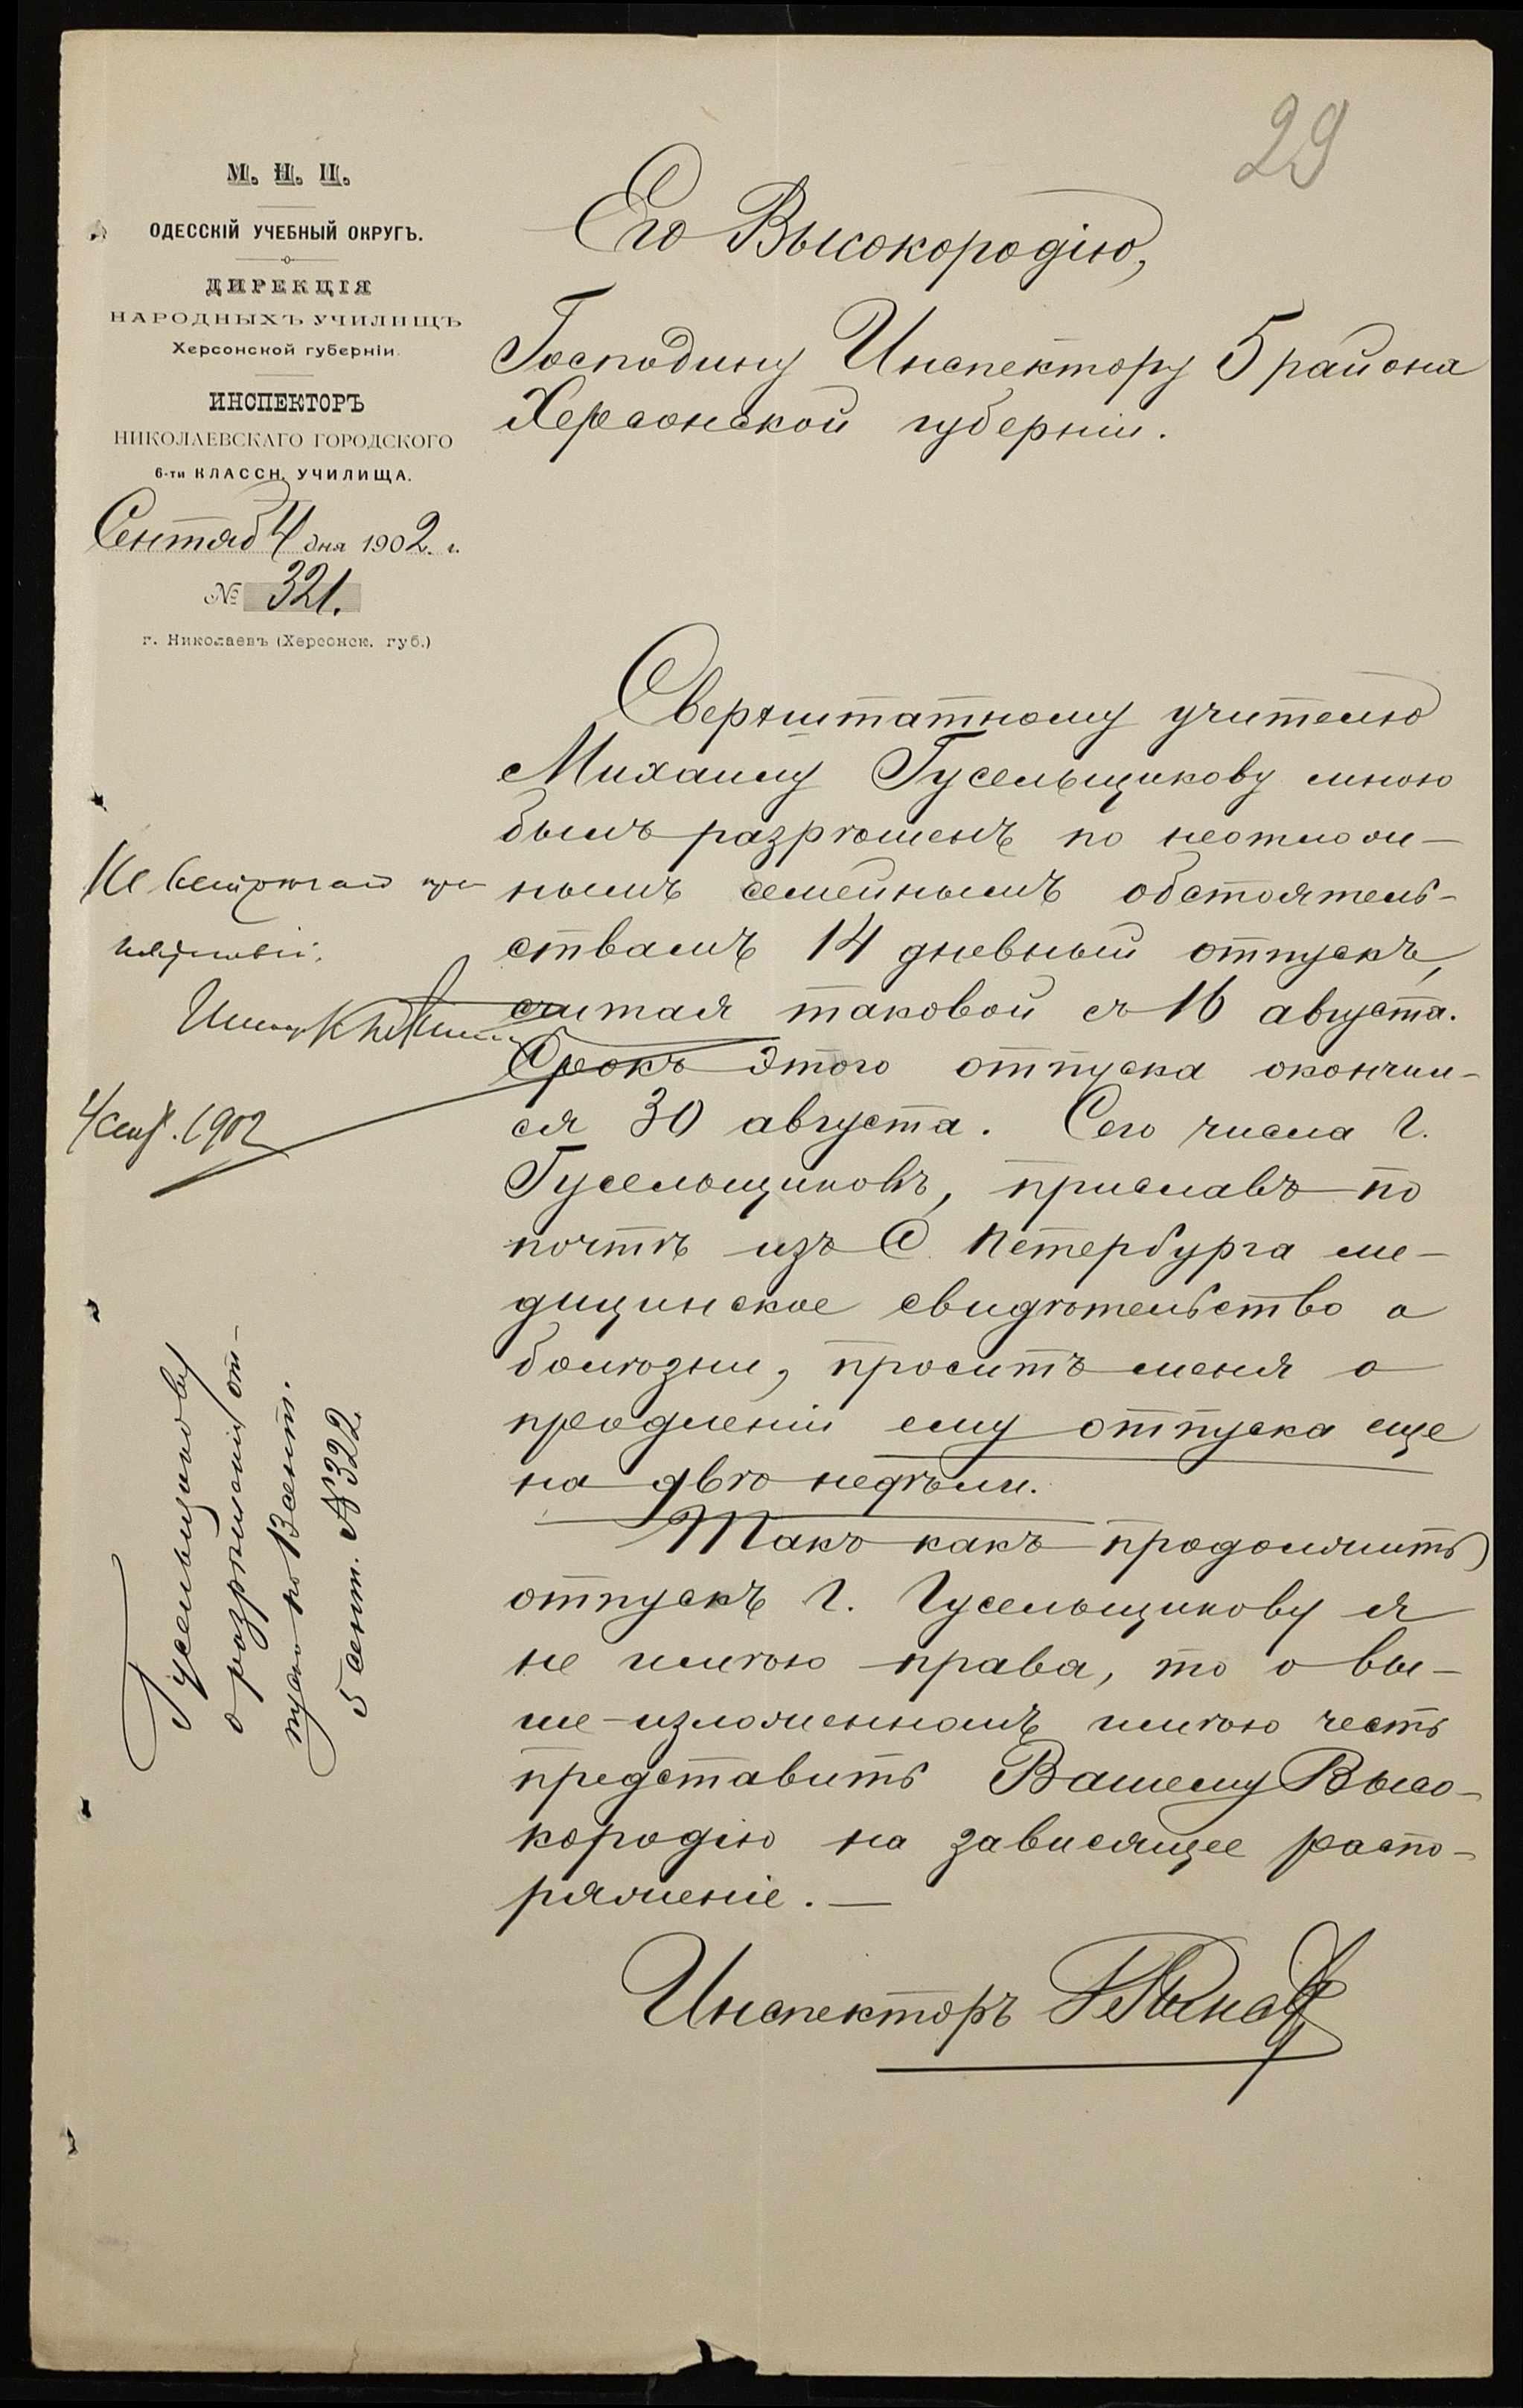 29
М. Н. П.
ОДЕССКІЙ УЧЕБНЫЙ ОКРУГЪ.
ДИРЕКЦІЯ
НАРОДНЫХЪ УЧИЛИЩЪ
Херсонской губерніи.
ИНСПЕКТОРЪ
НИКОЛАЕВСКАГО ГОРОДСКОГО
6-ти КЛАССН. УЧИЛИЩА.
Сентяб 4 дня 1902. г.
№ 321.
г. Николаевъ (Херсонск. губ.)
Его Высокородію,
Господину Инспектору 5 района
Херсонской губерніи.
Сверхштатному учителю
Михаилу Гусельщикову мною
былъ разрѣшенъ по неотлож-
нымъ семейнымъ обстоятель-
ствамъ 14 дневный отпускъ,
считая таковой съ 16 августа.
Срокъ этого отпуска окончил-
ся 30 августа. Сего числа г.
Гусельщиковъ, приславъ по
почтѣ изъ С. Петербурга ме-
дицинское свидѣтельство о
болѣзни, проситъ меня о
продленіи ему отпуска еще
на двѣ недѣли.
Такъ какъ продолжить
отпускъ г. Гусельщикову я
не имѣю права, то о вы-
ше-изложенномъ имѣю честь
представить Вашему Высо-
кородію на зависящее распо-
ряженіе. —
Инспекторъ
Не встрѣчаю пре-
пятствій.
4 сент. 1902
Гусельщикову
о разрѣшеніи от-
пуска по 13 сент.
5 сент. № 322